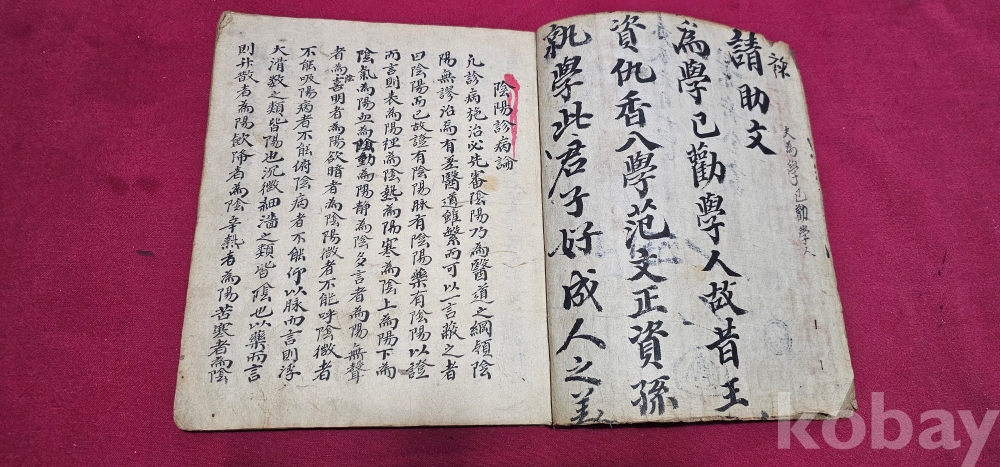 請助文
為學已勸學人故昔王
資仇香入學范文正資孫
執學此君子好成人之美
陰陽診病論
凡診病施治必先審陰陽乃為醫道之綱領陰
陽無謬治焉有差醫道雖繁而可以一言蔽之者
曰陰陽而已故證有陰陽脉有陰陽藥有陰陽以證
而言則表為陽裡為陰熱為陽寒為陰上為陽下為
陰氣為陽血為陰動為陽靜為陰多言者為陽無聲
者為陰喜明者為陽欲暗者為陰陽微者不能呼陰微者
不能吸陽病者不能俯陰病者不能仰以脉而言則浮
大滑數之類皆陽也沉微細濇之類皆陰也以藥而言
則升散者為陽歛降者為陰辛熱者為陽苦寒者為陰
kobay